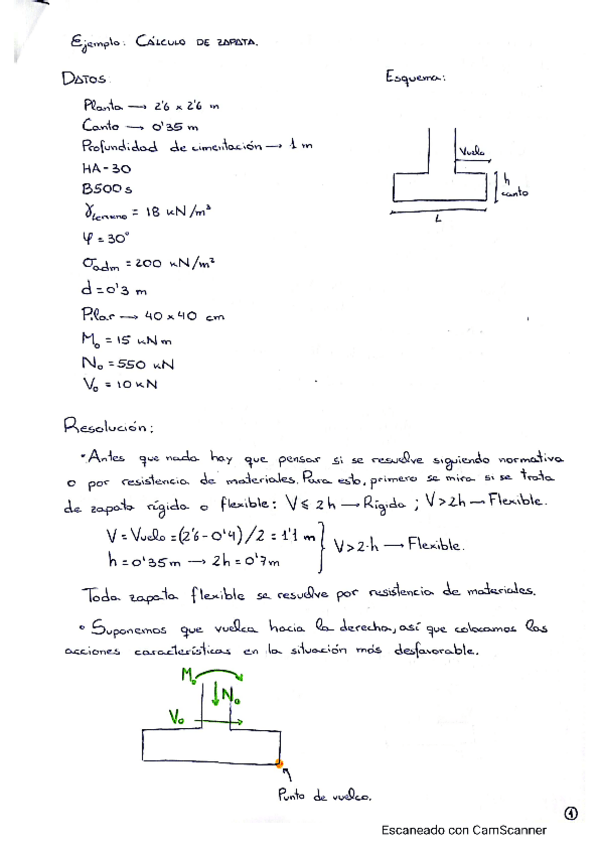 Ejemplo: CÁLCULO DE ZAPATA.
DATOS
Esquema:
Planta → 2'6 x 2'6 m
Canto → 0'35 m
Profundidad de cimentación → 1 m
HA-30
B500s
γterreno = 18 kN/m³
φ = 30°
σadm = 200 kN/m²
d = 0'3 m
Pilar → 40 x 40 cm
M₀ = 15 kNm
N₀ = 550 kN
V₀ = 10 kN
Vuelo
h
canto
L
Resolución:
• Antes que nada hay que pensar si se resuelve siguiendo normativa
o por resistencia de materiales. Para esto, primero se mira si se trata
de zapata rígida o flexible: V ≤ 2h → Rígida ; V > 2h → Flexible.
V = Vuelo = (2'6 - 0'4) / 2 = 1'1 m
h = 0'35 m → 2h = 0'7 m
V > 2·h → Flexible.
Toda zapata flexible se resuelve por resistencia de materiales.
• Suponemos que vuelca hacia la derecha, así que colocamos las
acciones características en la situación más desfavorable.
M₀
N₀
V₀
Punto de vuelco.
1
Escaneado con CamScanner